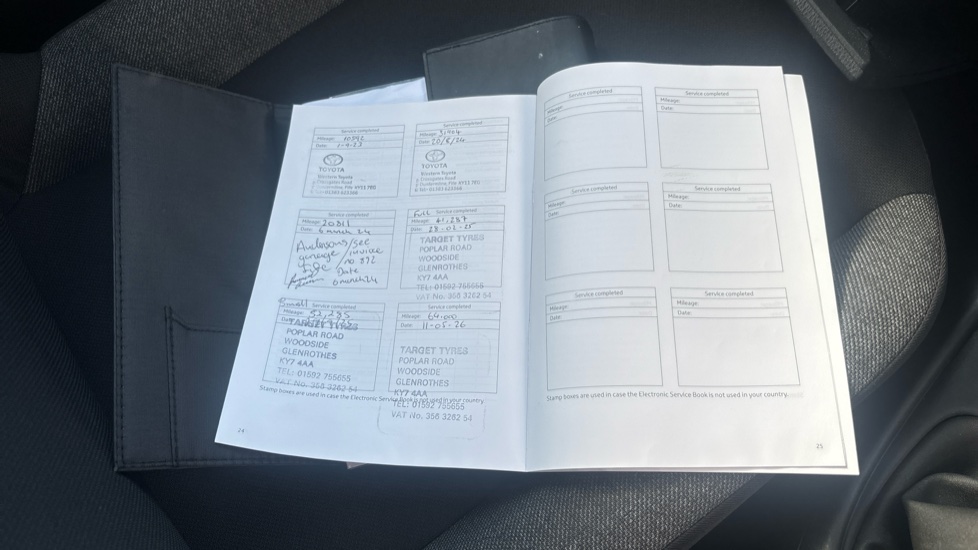 Service completed
Mileage: 10592
Date: 1-9-23
TOYOTA
Western Toyota
Service completed
Mileage:
Date: 20/8/24
TOYOTA
Western Toyota
Service completed
Mileage: 20811
Date: 6 march 24
Andersons / see
garage / invoice
no. 892
Date
6 march 24
Full Service completed
Mileage: 41,287
Date: 28-02-25
TARGET TYRES
POPLAR ROAD
WOODSIDE
GLENROTHES
KY7 4AA
TEL: 01592 755655
VAT No. 356 3262 54
Small Service completed
Mileage: 52,285
TARGET TYRES
POPLAR ROAD
WOODSIDE
GLENROTHES
KY7 4AA
TEL: 01592 755655
VAT No. 356 3262 54
Service completed
Mileage: 64,000
Date: 11-05-26
TARGET TYRES
POPLAR ROAD
WOODSIDE
GLENROTHES
KY7 4AA
TEL: 01592 755655
VAT No. 356 3262 54
Stamp boxes are used in case the Electronic Service Book is not used in your country.
24
Service completed
Mileage:
Date:
Service completed
Mileage:
Date:
Service completed
Mileage:
Date:
Service completed
Mileage:
Date:
Service completed
Mileage:
Date:
Service completed
Mileage:
Date:
Stamp boxes are used in case the Electronic Service Book is not used in your country.
25